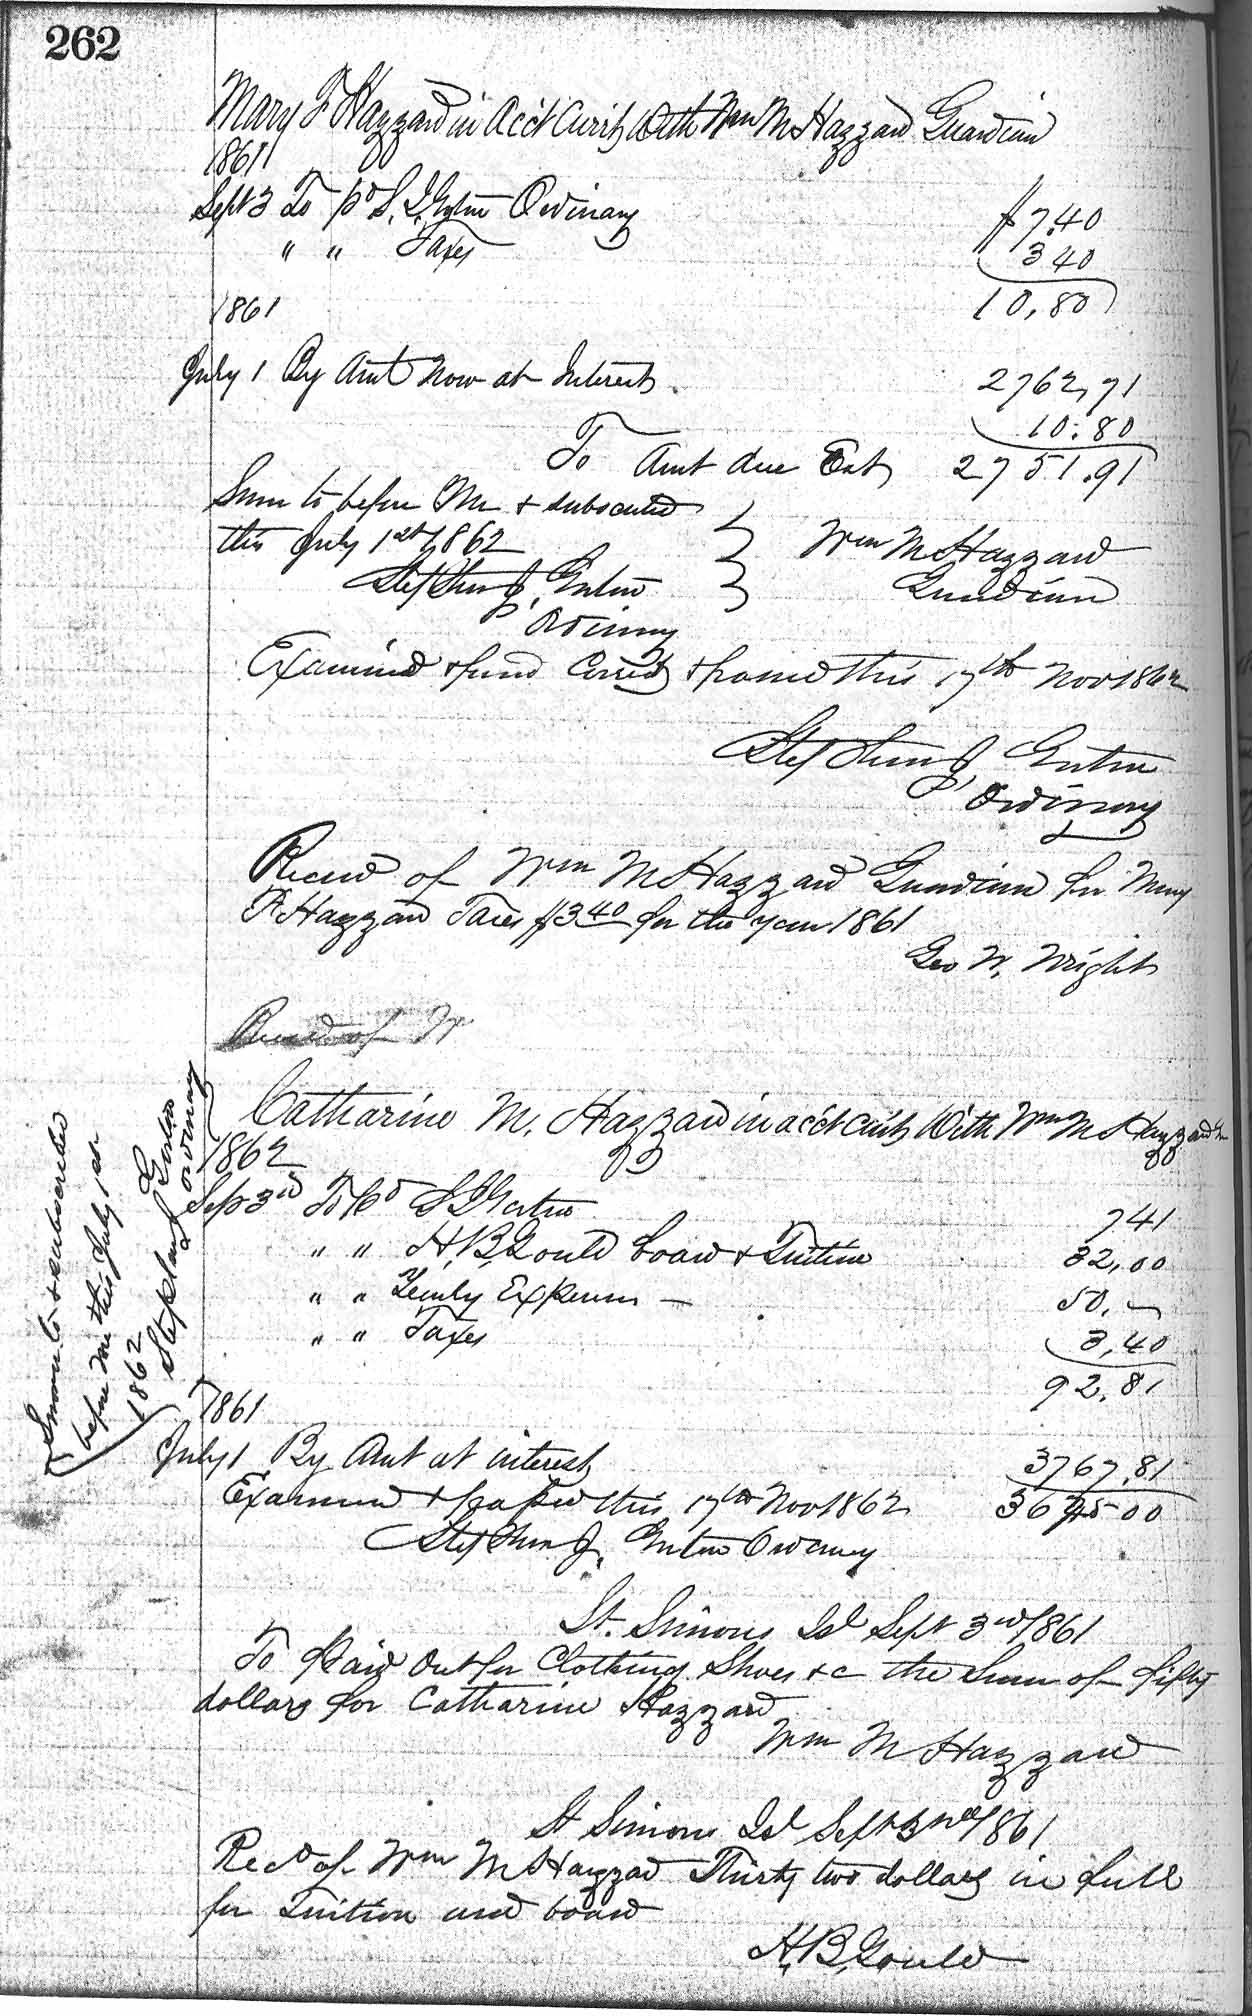 262
Mary F Hazzard in Acct Currt With Wm M Hazzard Guardian
1861
Sept 3 To pd S. J. Gorton Ordinary $7.40
" " Taxes 3 40
10,80
1861
July 1 By Amt Now at Interest 2762,71
10.80
To Amt due Est 2751.91
Sworn to before Me & subscribed
this July 1st 1862
Wm M Hazzard
Guardian
Stephen J. Gorton
Ordinary
Examined & found Correct & passed this 17th Nov 1862
Stephen J. Gorton
Ordinary
Received of Wm M Hazzard Guardian for Mary
F. Hazzard Taxes $3 40 for the year 1861
Geo W. Wright
Received of W
Catharine M. Hazzard in acct Currt With Wm M Hazzard Gn
1862
Sep 3rd To Pd S J Gorton 741
" " H. B. Gould board & Tuition 32,00
" " Family Expenses — 50, —
" " Taxes 3,40
92.81
1861
July 1 By Amt at interest 3767.81
Examined & passed this 17th Nov 1862 367500
Stephen J. Gorton Ordinary
Sworn to & subscribed
before me this July 1st
1862
Stephen J Gorton
Ordinary
St. Simons Isl Sept 3rd 1861
To Paid Out for Clothing Shoes &c the Sum of fifty
dollars for Catharine Hazzard
Wm M Hazzard
St Simons Isl Sept 3rd 1861
Recd of Wm M Hazzard Thirty two dollars in full
for Tuition and board
H. B. Gould